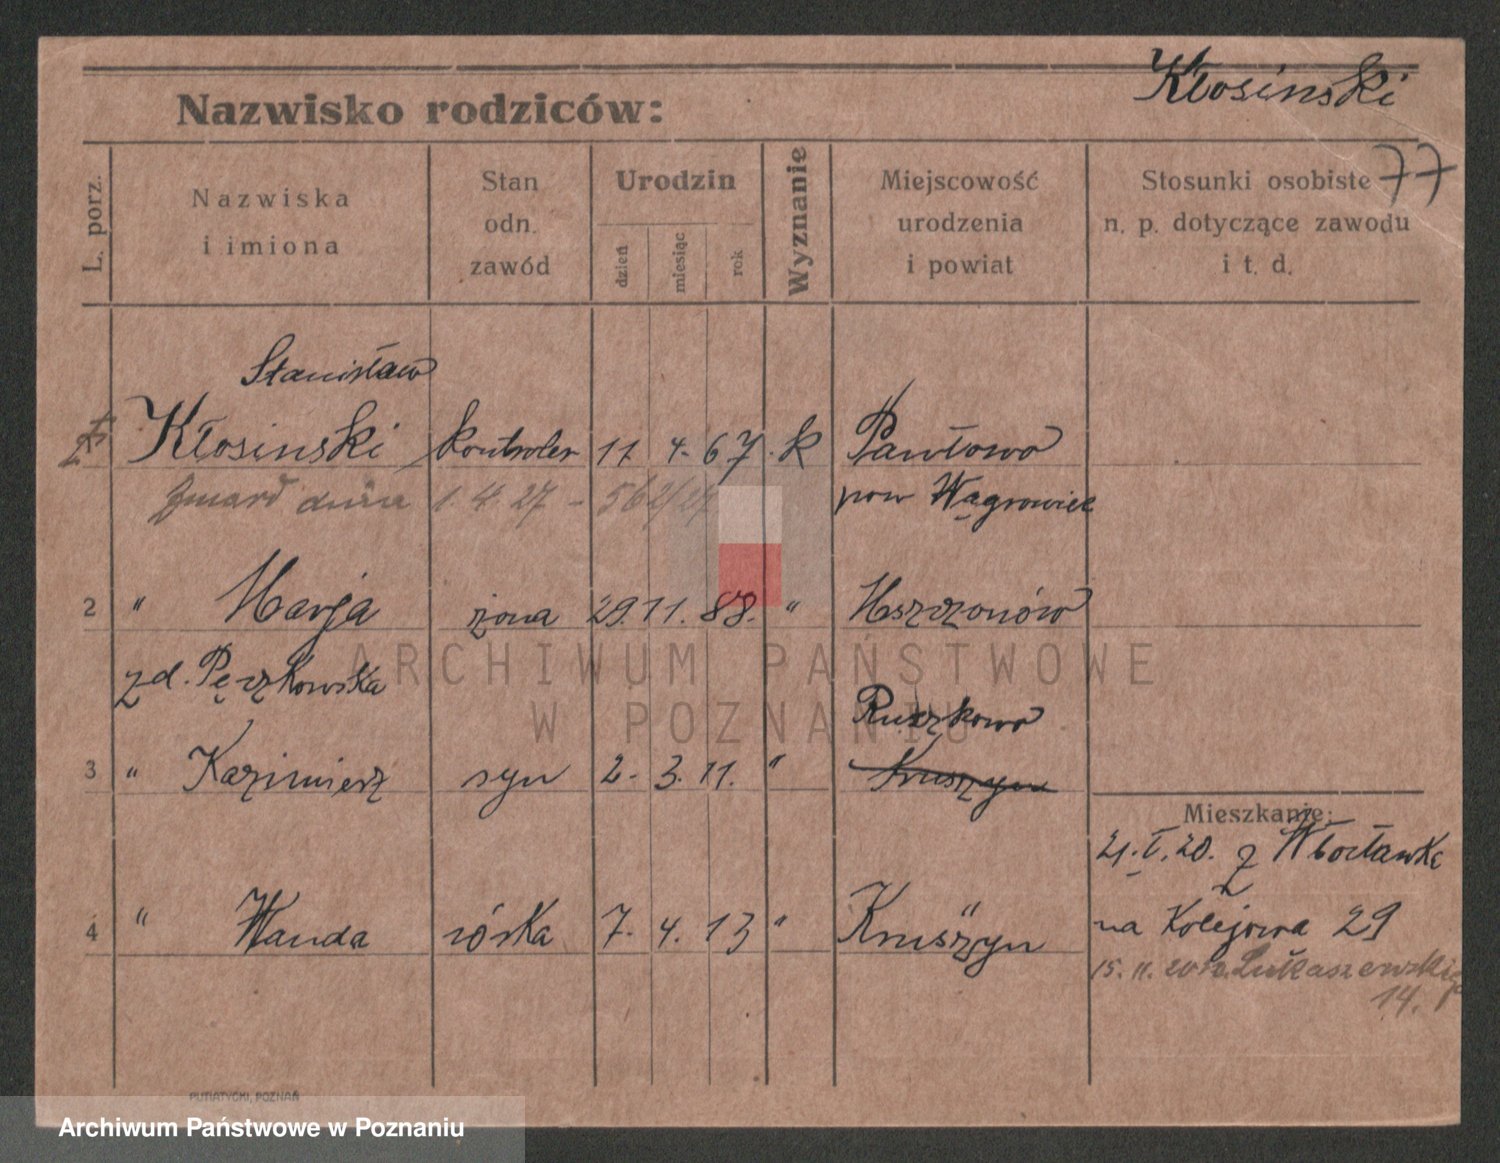 Kłosinski
Nazwisko rodziców:
77
L. porz.
Nazwiska
i imiona
Stan
odn.
zawód
Urodzin
dzień
miesiąc
rok
Wyznanie
Miejscowość
urodzenia
i powiat
Stosunki osobiste
n. p. dotyczące zawodu
i t. d.
Stanisław
Kłosinski kontroler 11 4. 67 k Pawłowo
zmarł dnia 1. 4. 27 - 562/27 pow Wągrowiec
2 " Marja żona 29. 11. 88. " Mszczonów
zd. Pęczkowska
Ruszkowo
3 " Kazimierz syn 2. 3. 11. " Kruszyn
Mieszkanie:
21. I. 20. z Włocławka
4 " Wanda córka 7. 4. 13 " Kruszyn
na Kolejowa 29
15. 11. 20 Łukaszewskiego
14.
ARCHIWUM PAŃSTWOWE
W POZNANIU
PUTIATYCKI, POZNAŃ
Archiwum Państwowe w Poznaniu